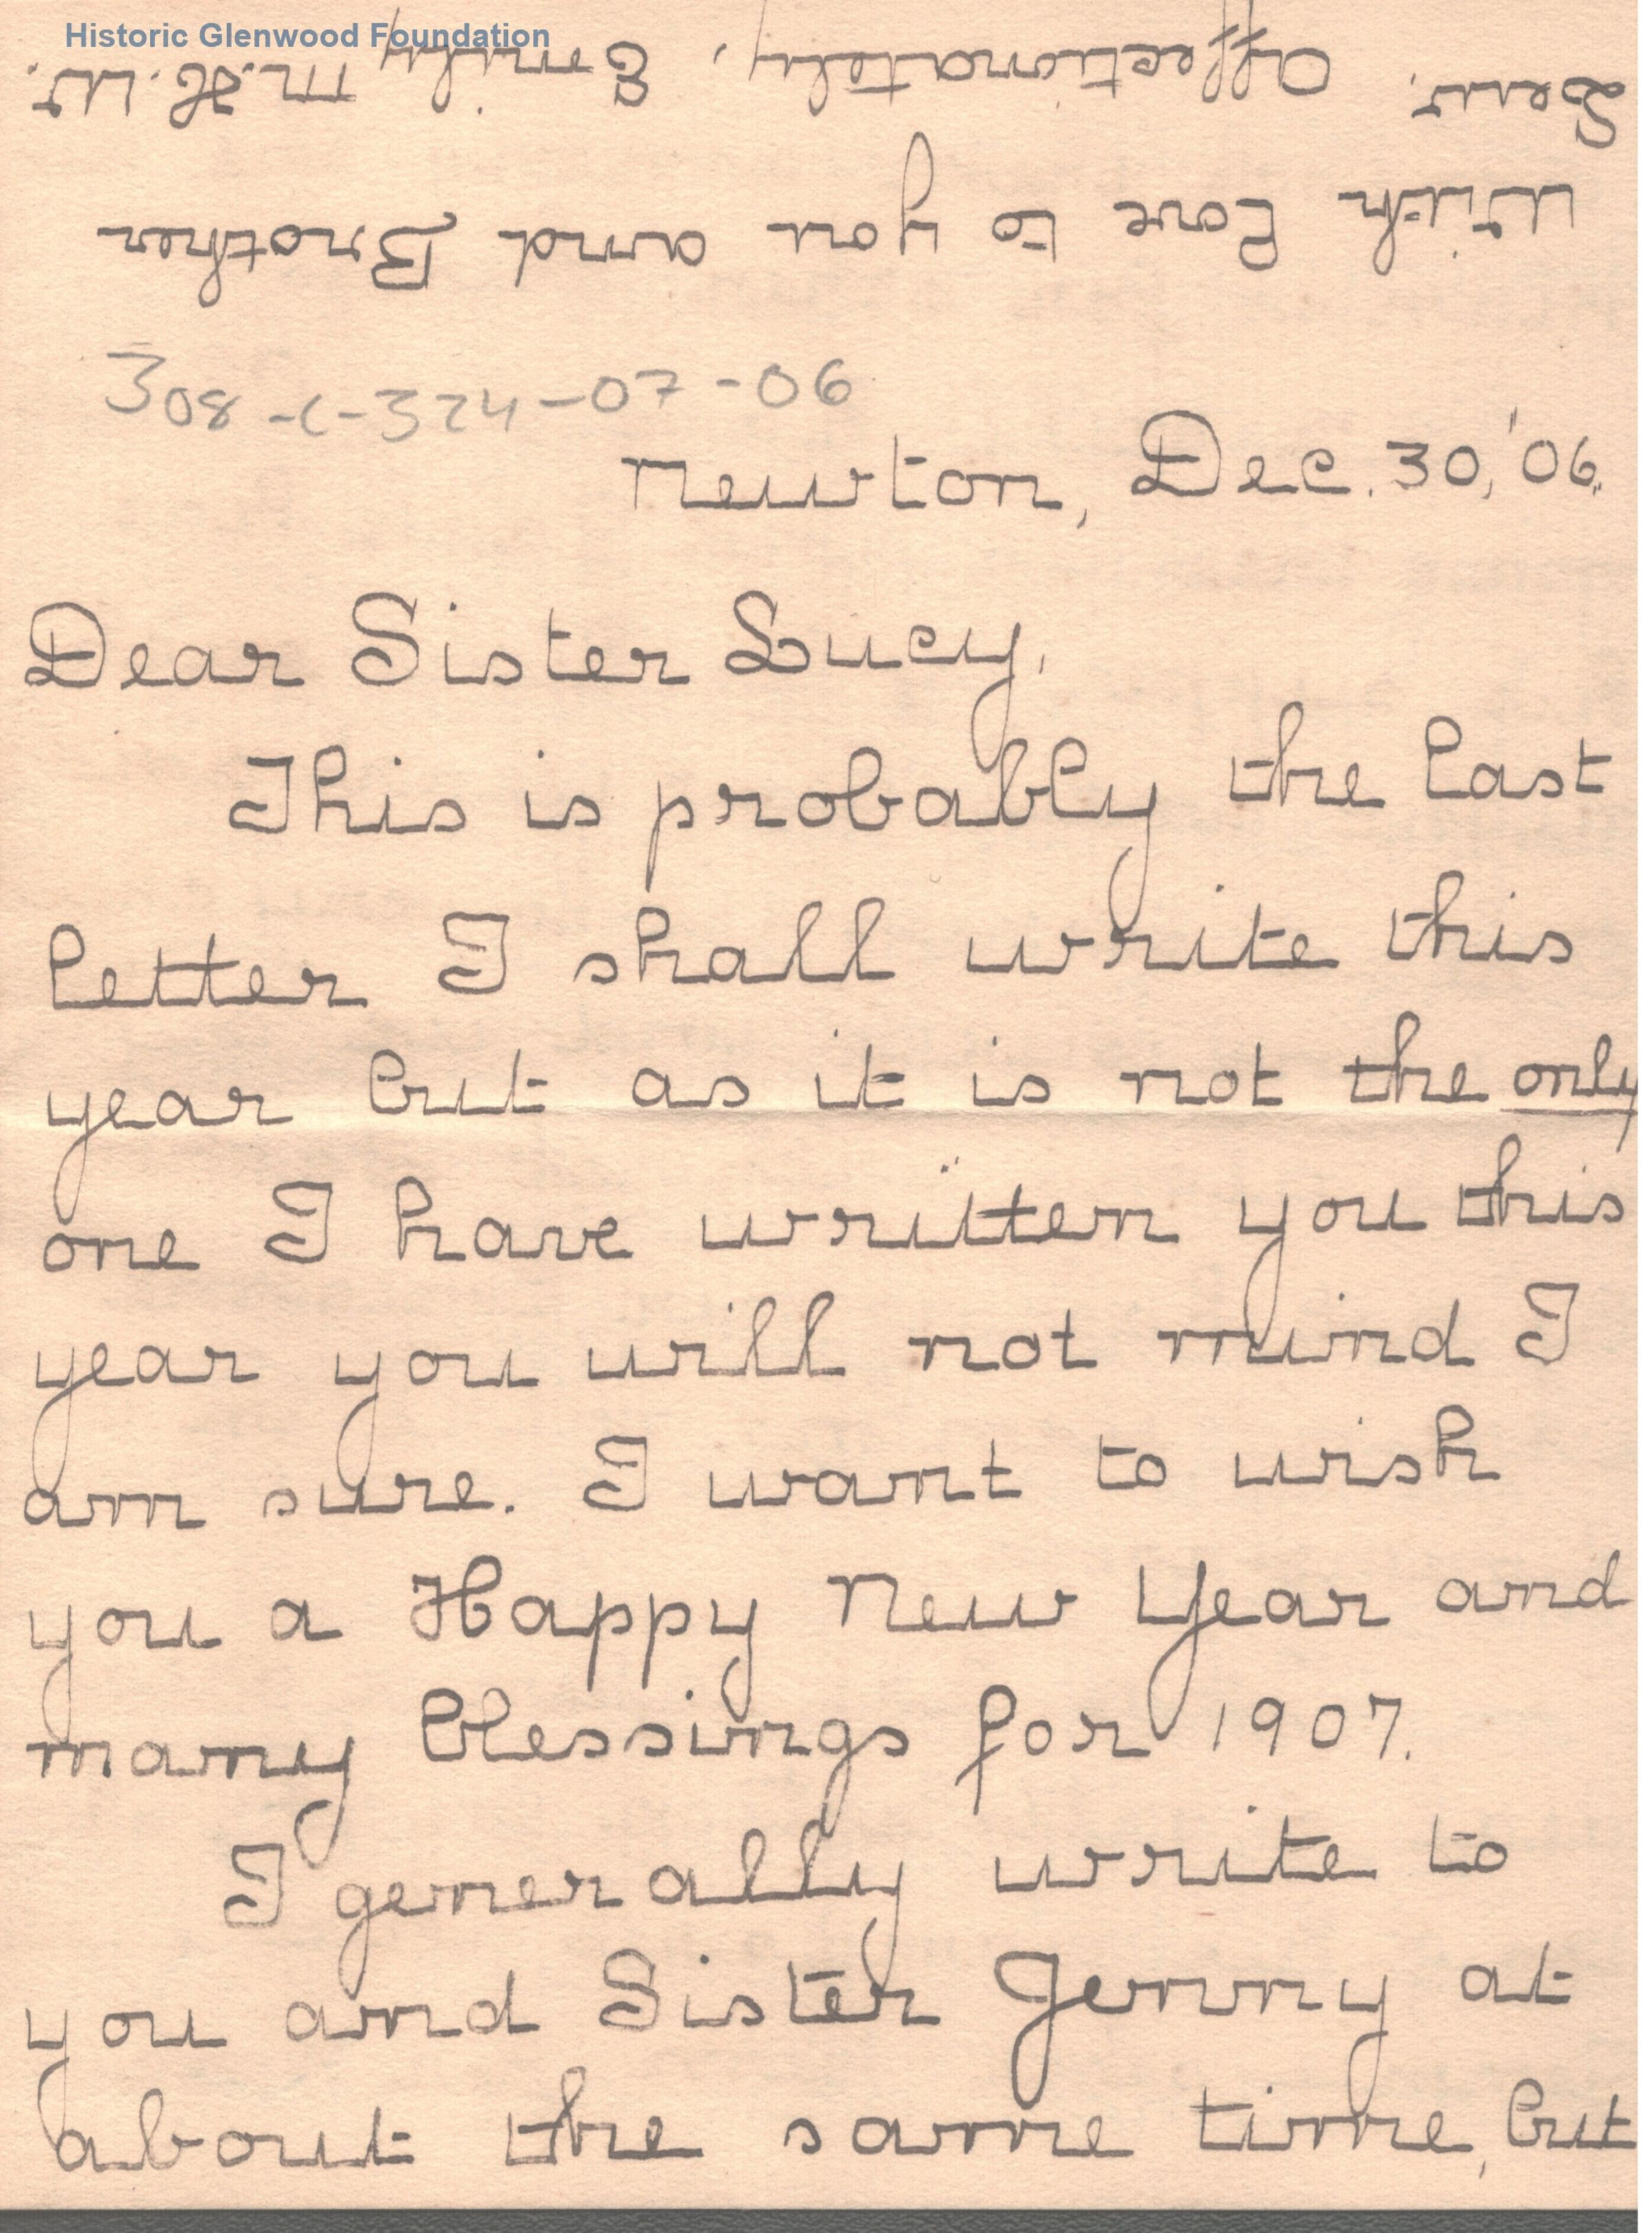 Historic Glenwood Foundation
With love to you and Brother
Lew. Affectionately, Emily M. H. W.
308-C-324-07-06
Newton, Dec. 30, '06.
Dear Sister Lucy,
This is probably the last
letter I shall write this
year but as it is not the only
one I have written you this
year you will not mind I
am sure. I want to wish
you a Happy New Year and
many blessings for 1907.
I generally write to
you and Sister Jenny at
about the same time, but